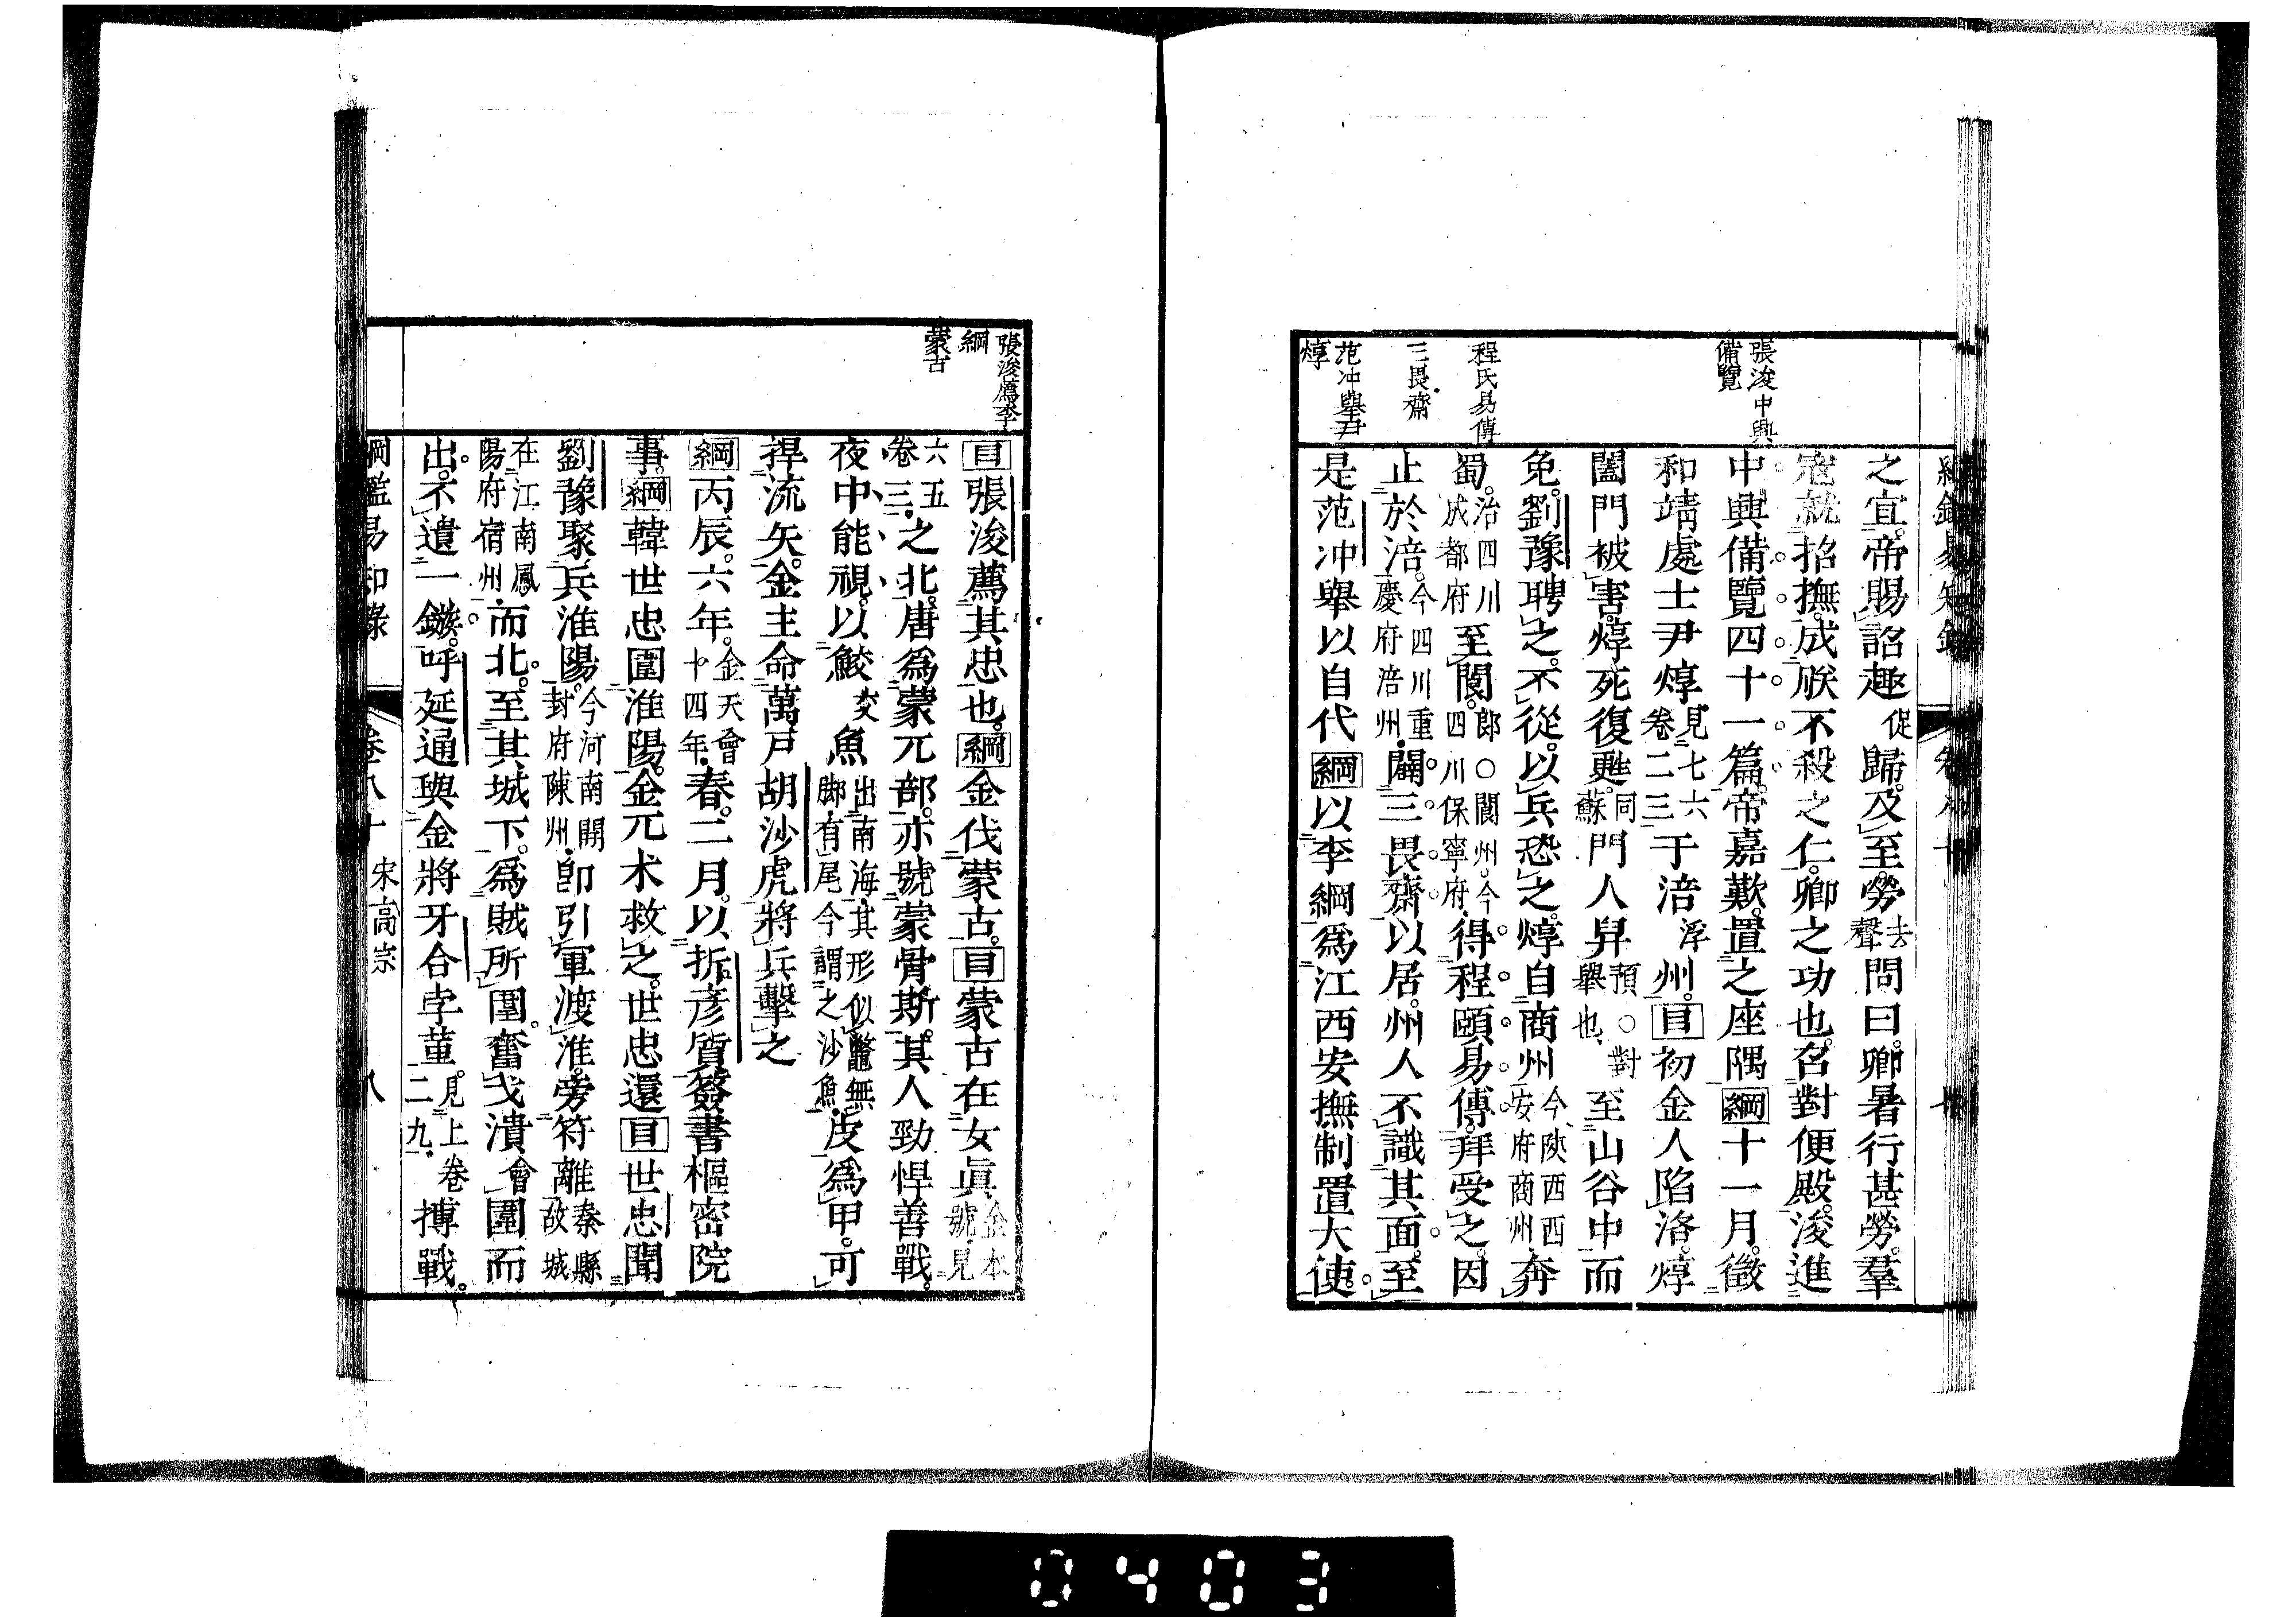 張浚中興
備覽
程氏易傳
三畏齋
范冲舉尹
焞
之宜。帝賜詔趣促歸。及至。勞去聲問曰。卿暑行甚勞。羣
寇就招撫。成朕不殺之仁。卿之功也。召對便殿。浚進
中興備覽四十一篇。帝嘉歎。置之座隅綱十一月。徵
和靖處士尹焞見七六卷二三于涪浮州。目初金人陷洛。焞
闔門被害。焞死復甦同蘇門人舁預○對舉也、至山谷中而
免。劉豫聘之。不從。以兵恐之。焞自商州今陝西西安府商州奔
蜀。治四川成都府至閬。郞○閬州。今四川保寧府得程頤易傳。拜受之。因
止於涪。今四川重慶府涪州闢三畏齋以居。州人不識其面。至
是范冲舉以自代綱以李綱爲江西安撫制置大使。
張浚薦李
綱
蒙古
目張浚薦其忠也。綱金伐蒙古。目蒙古在女眞金本號見
六五卷三之北。唐爲蒙兀部。亦號蒙骨斯。其人勁悍善戰。
夜中能視。以鮫交魚出南海。其形似鼈無脚有尾今謂之沙魚皮爲甲。可
捍流矢。金主命萬戸胡沙虎將兵擊之
綱丙辰。六年。金天會十四年春。二月。以折彦質簽書樞密院
事。綱韓世忠圍淮陽。金兀朮救之。世忠還目世忠聞
劉豫聚兵淮陽。今河南開封府陳州卽引軍渡淮。旁符離秦縣故城
在江南鳳陽府宿州而北。至其城下。爲賊所圍。奮戈潰會圍而
出。不遺一鏃。呼延通與金將牙合孛堇見上卷二九搏戰。
綱鑑易知錄 卷八十 宋高宗 八
0403